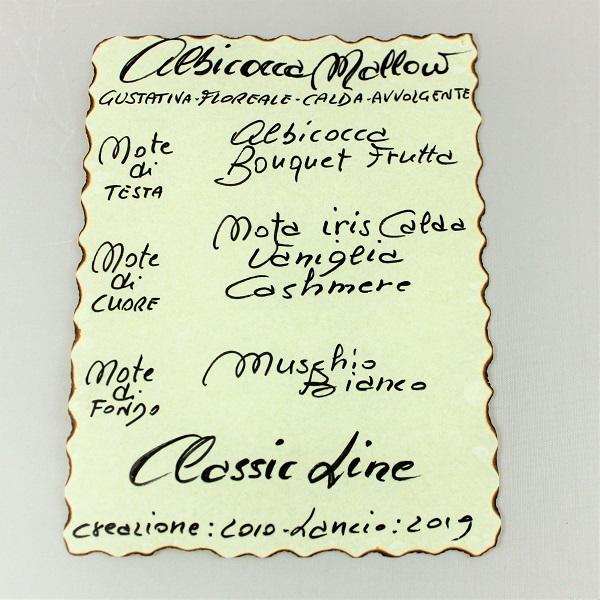 Albicocca Mallow
GUSTATIVA-FLOREALE-CALDA-AVVOLGENTE
Note di TESTA
Albicocca
Bouquet Frutta
Note di CUORE
Nota iris Calda
Vaniglia
Cashmere
Note di FONDO
Muschio
Bianco
Classic Line
creazione: 2010-Lancio: 2019